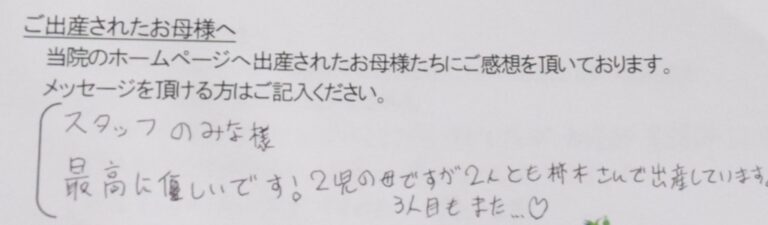 ご出産されたお母様へ
当院のホームページへ出産されたお母様たちにご感想を頂いております。
メッセージを頂ける方はご記入ください。
スタッフのみな様
最高に優しいです！2児の母ですが2人とも柿木さんで出産しています。
3人目もまた…♡